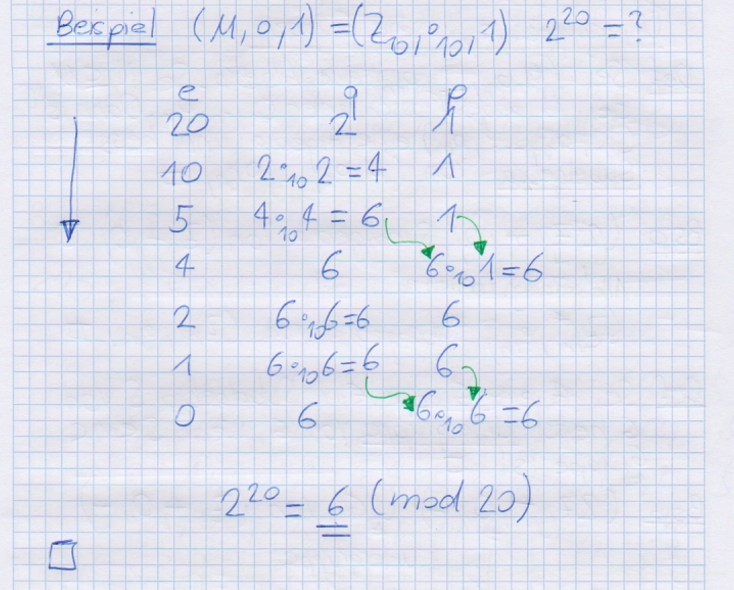 Beispiel (M,∘,1) = (Z₁₀,∘₁₀,1) 2²⁰ = ?
e q p
20 2 1
10 2∘₁₀2 = 4 1
5 4∘₁₀4 = 6 1
4 6 6∘₁₀1 = 6
2 6∘₁₀6 = 6 6
1 6∘₁₀6 = 6 6
0 6 6∘₁₀6 = 6
2²⁰ = 6 (mod 20)